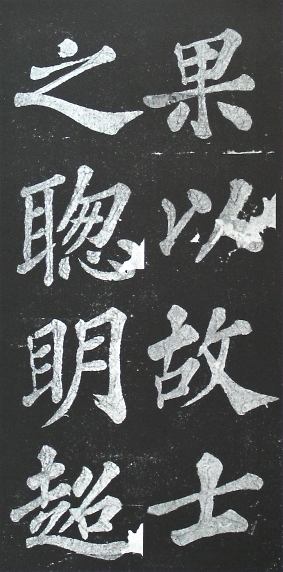 果以故士
之聦明超